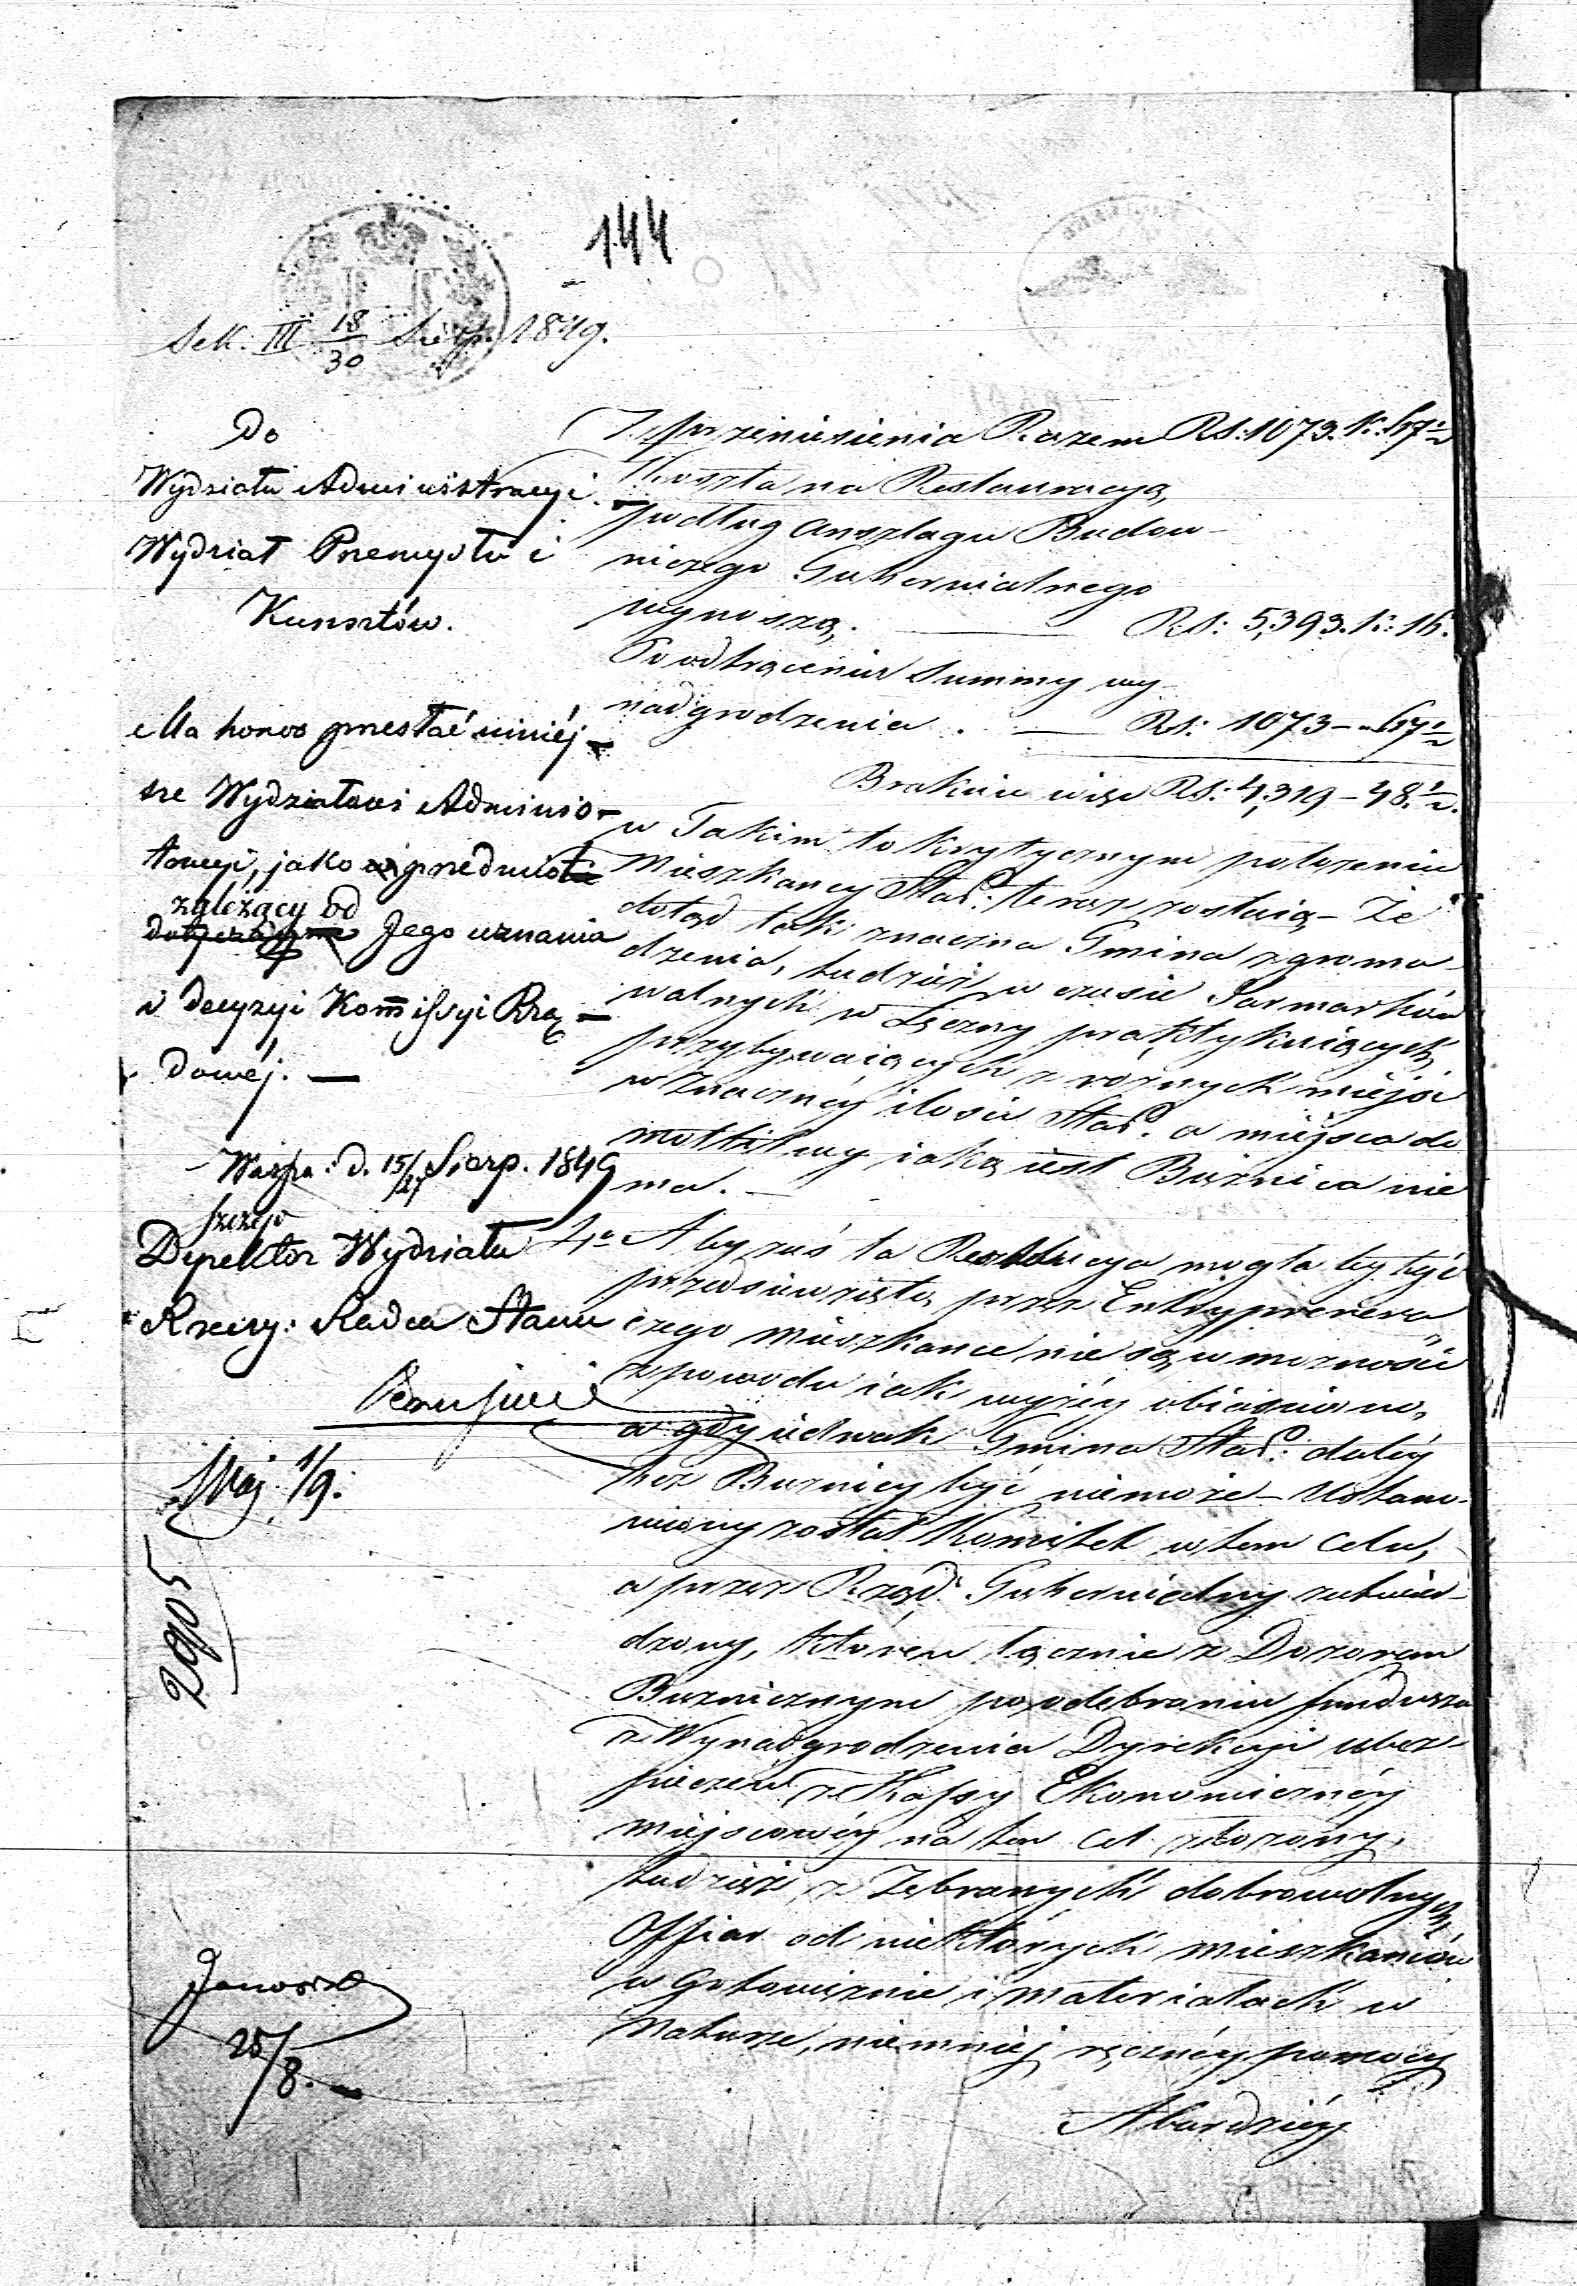 144
Sek. III 18/30 Sierp. 1849.
Do
Wydziału Administracyi.
Wydział Przemysłu i
Kunsztów.
Ma honor przesłać niniéj-
sze Wydziałowi Adminis-
tracyi, jako przedmiot
zależący od
Jego uznania
i decyzyi Kommissyi Rzą-
dowéj. —
Warsza: d. 15/27 Sierp. 1849
Dyrektor Wydziału
Rzeczy: Radca Stanu
Maj 1/9.
2905
25/8. —
Z przeniesienia Razem Rs: 1073. k: 67½
Koszta na Restauracyą,
podług anszlagu Budow-
niczego Gubernialnego
wynoszą. — Rs: 5,393. k: 16.
Po odtrąceniu Summy wy-
nadgrodzenia. — Rs: 1073 – 67½
Brakuie więc Rs: 4,319 – 48.½.
w Takim to krytycznym położeniu
Mieszkańcy Star: teraz zostaią – Że
dotąd tak znaczna Gmina zgroma-
dzenia, tudzież w czasie Jarmarków
walnych w Łęczny praktykuiących
przybywaiących z różnych miejsc
w znacznéy ilości Star: a miejsca do
modlitwy iaką iest Bużnica nie
ma. —
4o Aby zaś ta Restauracya mogła by być
przedsiewzięta, przez Entreprenera
czego mieszkańce nie są w możności
z powodu iak wyżéy obiaśniono,
a gdy iednak Gmina Star: daléy
bez Bużnicy być niemoże – Ustano-
wiony został Komitet w tem Celu,
a przez Rząd Gubernialny zatwier-
dzony, któren łącznie z Dozorem
Bużnicznym po odebraniu funduszu
z Wynadgrodzenia Dyrekcyi ubez-
pieczeń z Kassy Ekonomicznéy
miejscowéy na ten cel złożony,
tudzież z Zebranych dobrowolnych
Offiar od niektórych mieszkańców
w Gotowiznie i materiałach w
Naturze, niemniéj ręcznéy pomocy
A bardziéy